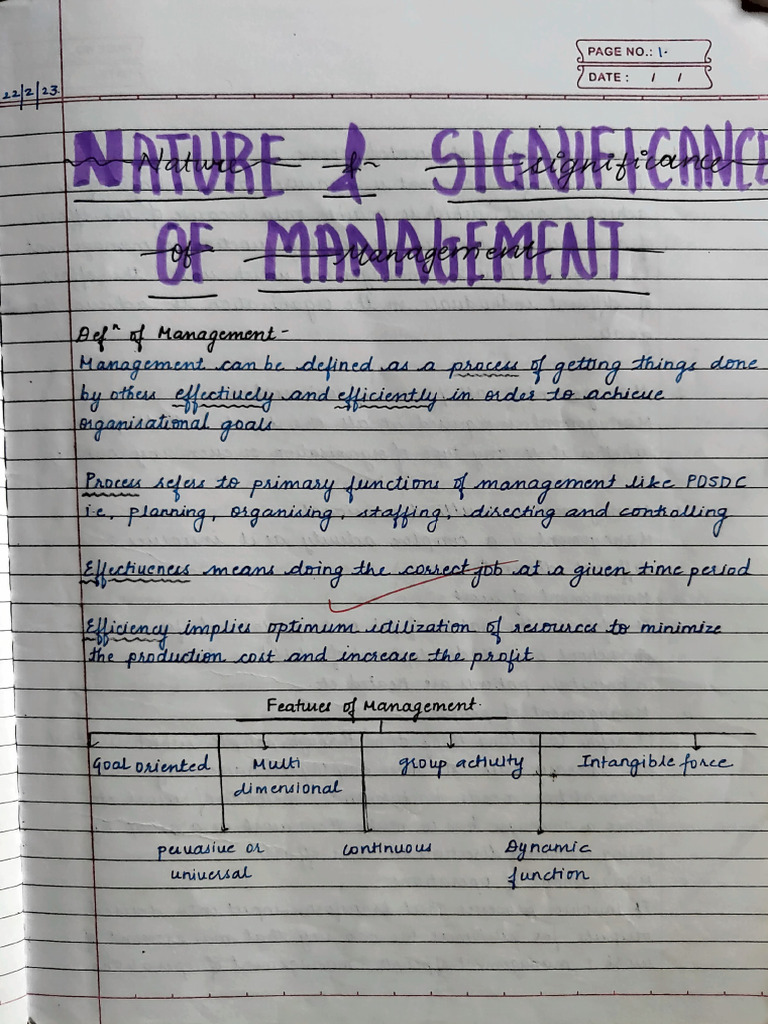 PAGE NO.: 1.
DATE: / /
22/2/23
NATURE & SIGNIFICANCE
Nature & Significance
OF MANAGEMENT
Of Management
Defⁿ of Management -
Management can be defined as a process of getting things done
by others effectively and efficiently in order to achieve
organisational goals
Process refers to primary functions of management like POSDC
i.e, planning, organising, staffing, directing and controlling
Effectiveness means doing the correct job at a given time period
Efficiency implies optimum utilization of resources to minimize
the production cost and increase the profit
Features of Management.
Goal oriented Multi group activity Intangible force
dimensional
pervasive or continuous Dynamic
universal function